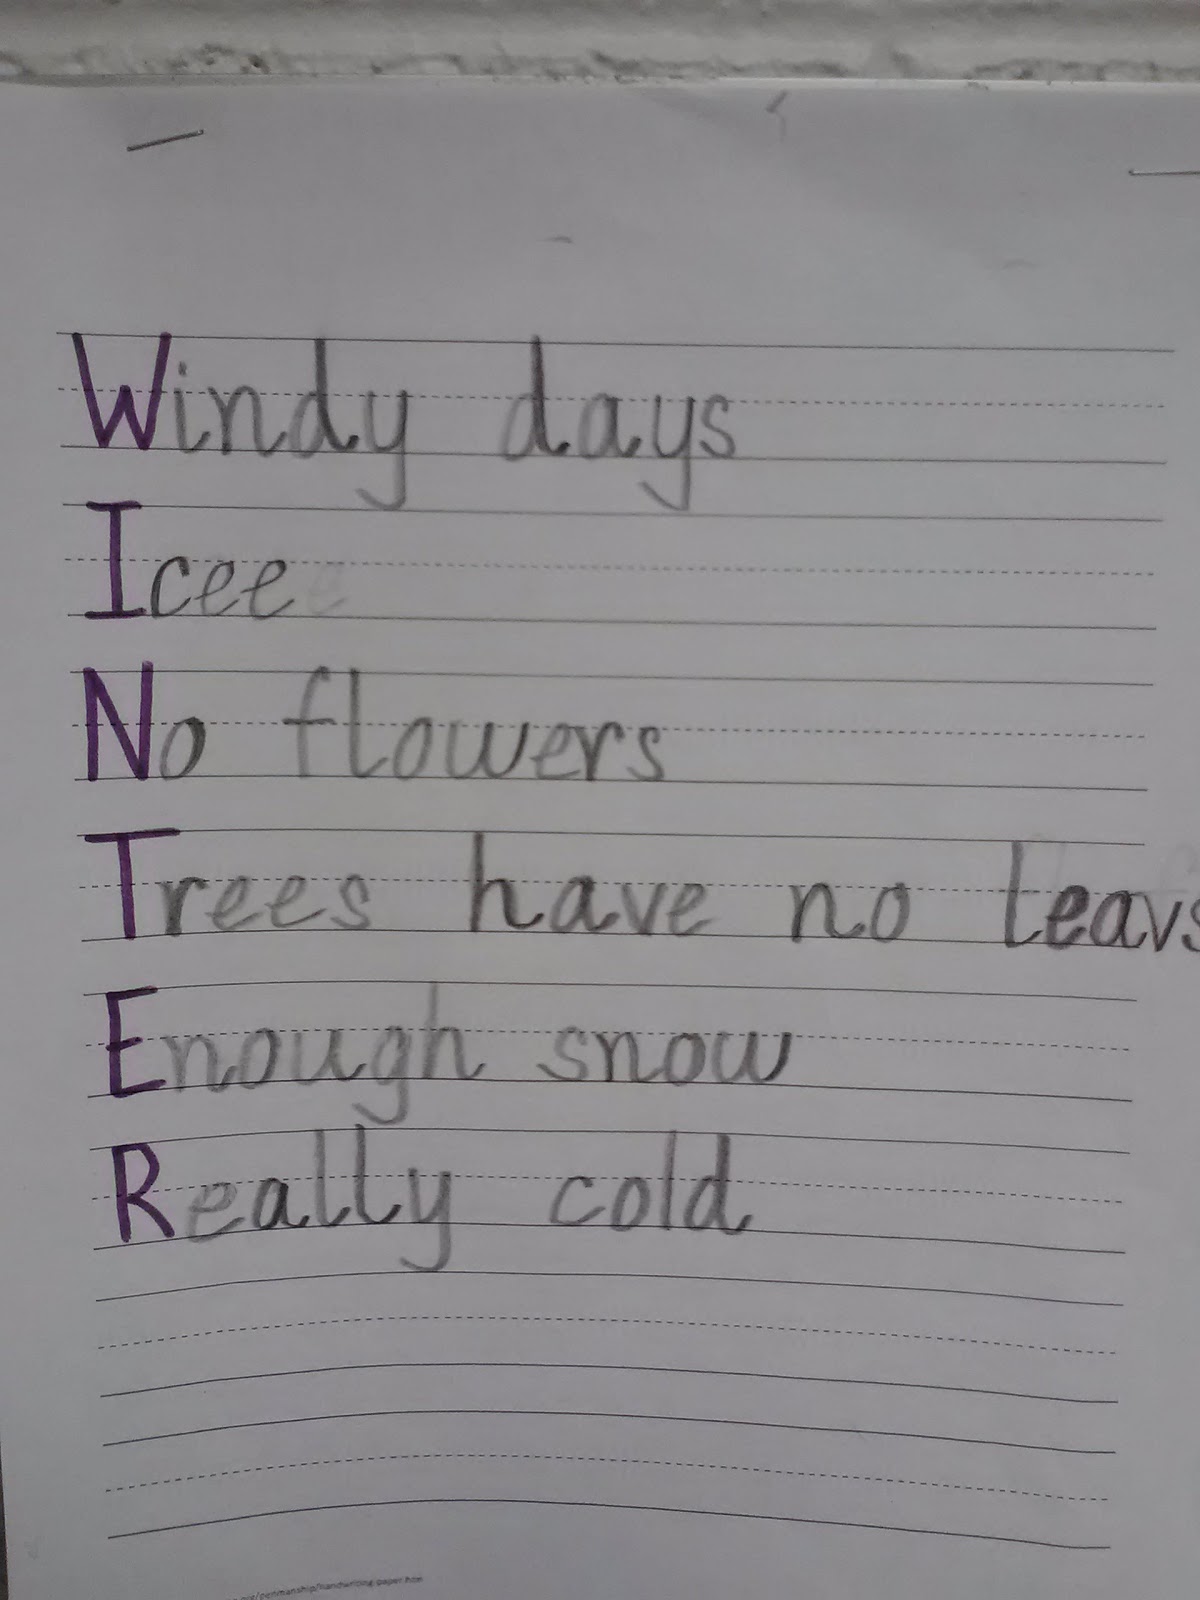 Windy days
Icee
No flowers
Trees have no leavs
Enough snow
Really cold
/penmanship/handwriting-paper.htm